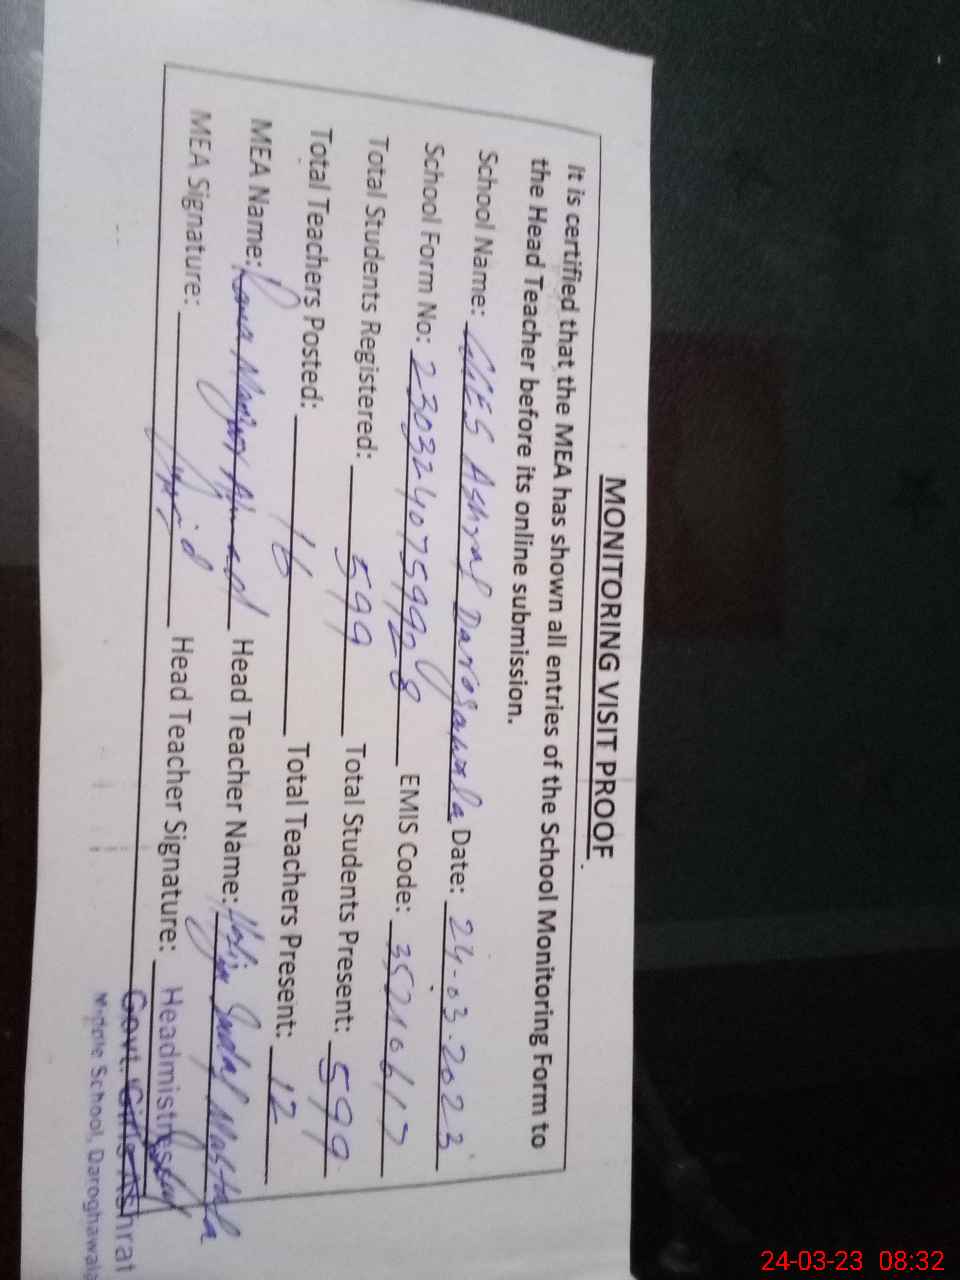 MONITORING VISIT PROOF.
It is certified that the MEA has shown all entries of the School Monitoring Form to
the Head Teacher before its online submission.
School Name: GGES Ashraf Darogawala Date: 24-03-2023
School Form No: 23032407599 EMIS Code: 35210617
Total Students Registered: 599 Total Students Present: 599
Total Teachers Posted: 16 Total Teachers Present: 12
MEA Name: Rana Ahmed Head Teacher Name:
MEA Signature: Head Teacher Signature:
Headmistress
Govt. Girls Ashraf
Middle School, Daroghawala
24-03-23 08:32